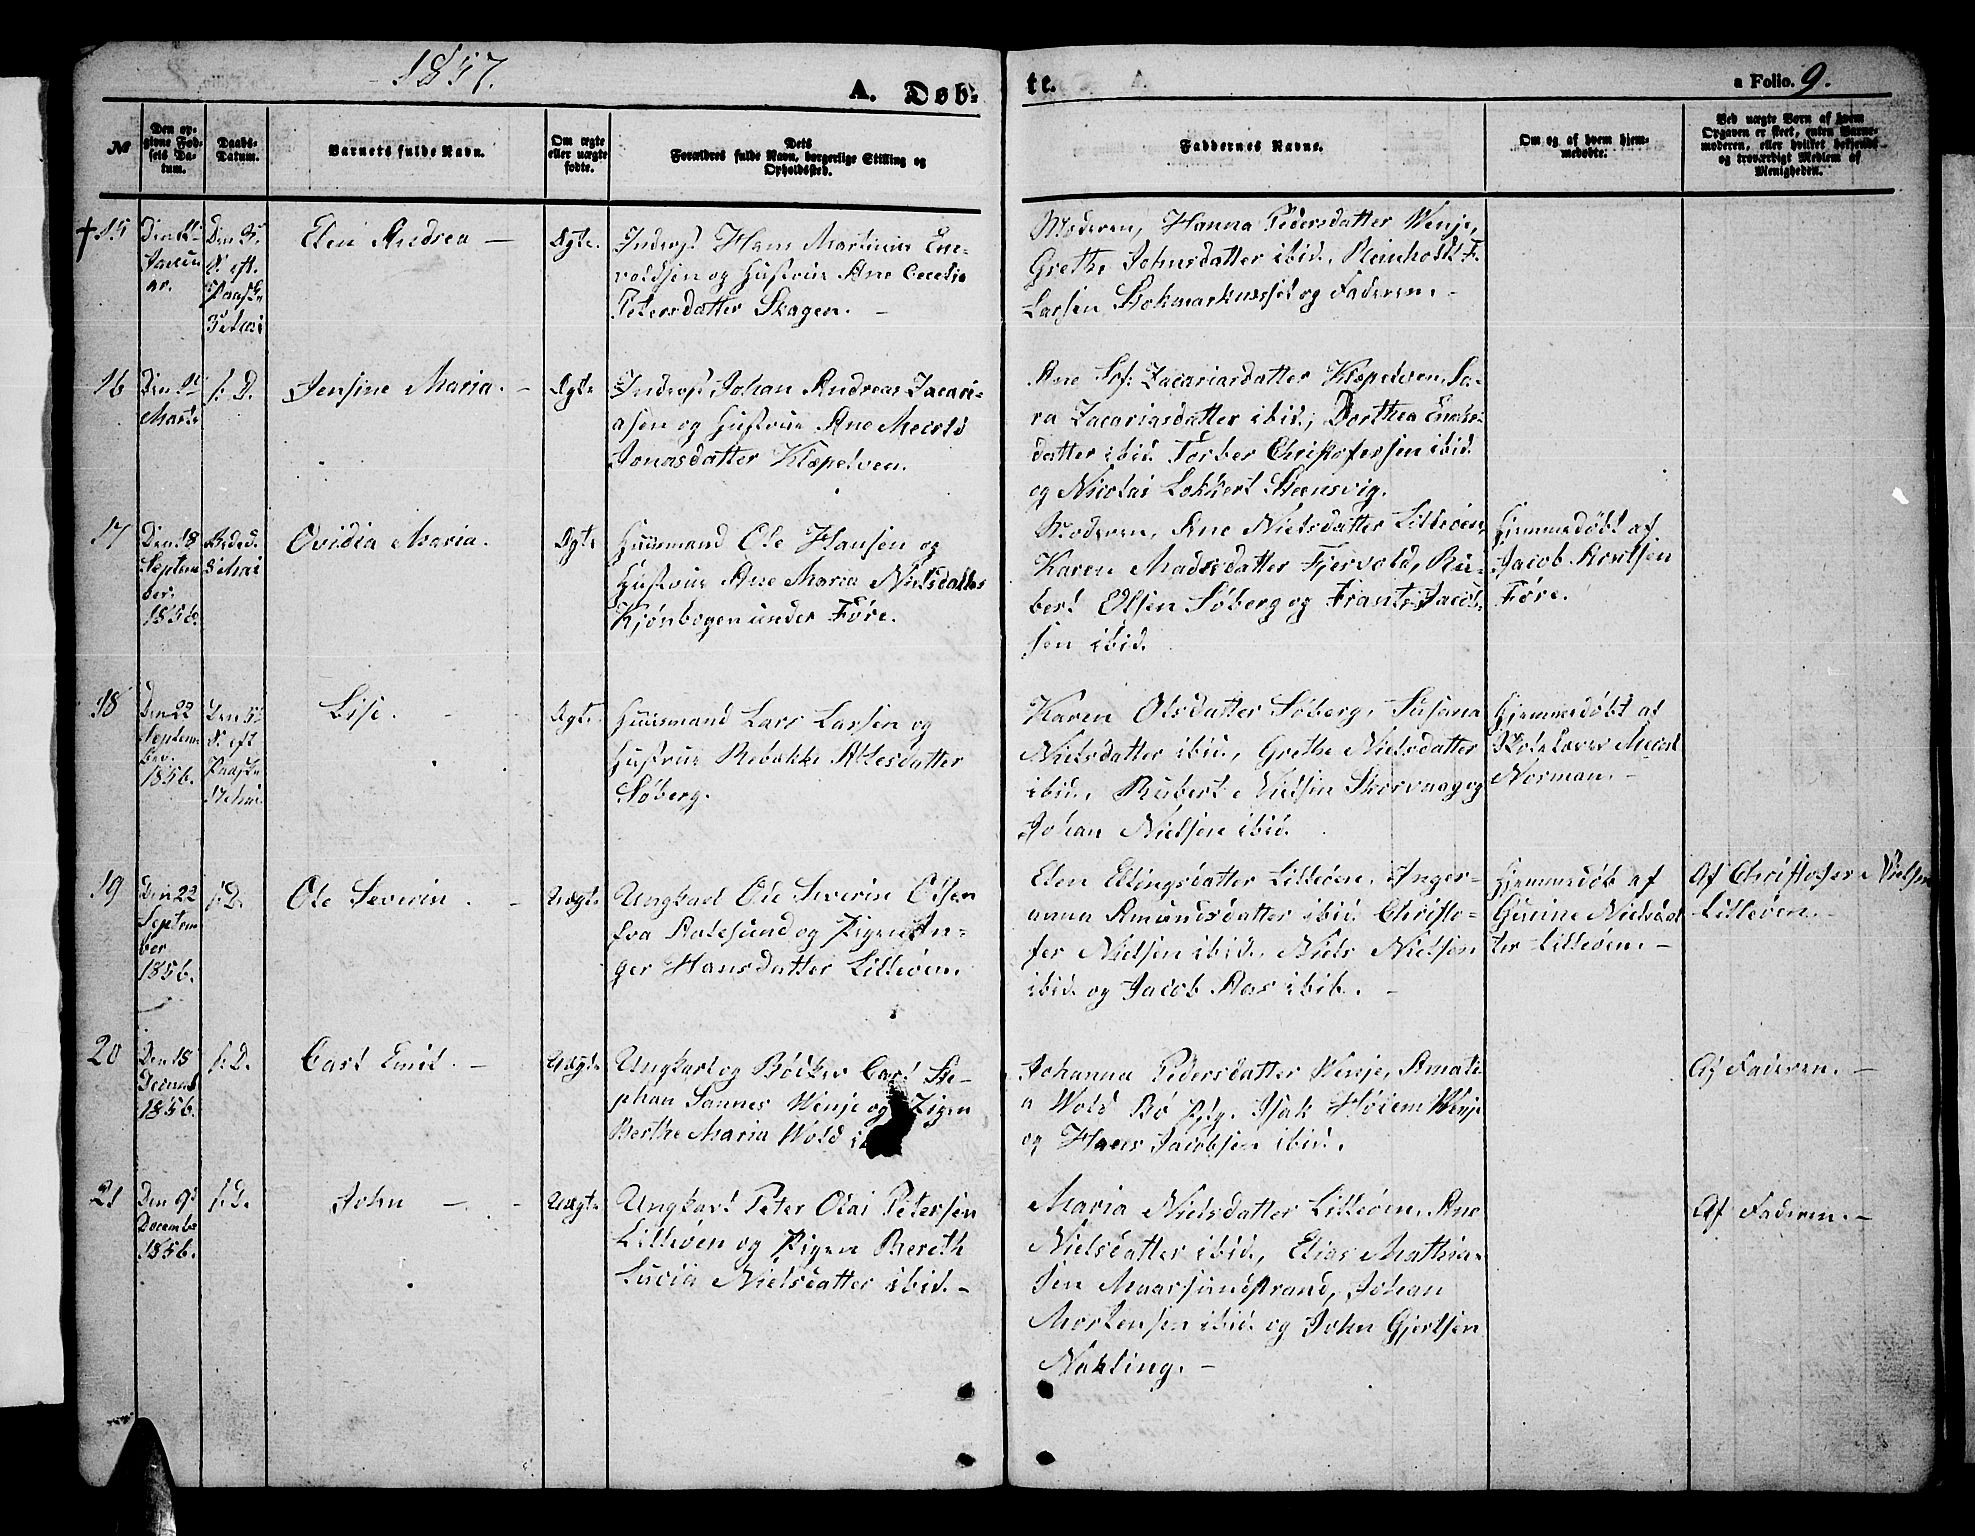 1857.
A. Døb-
te.
a Folio. 9.
No
Den op-
givne Fød-
sels Da-
tum.
Daabs-
Datum.
Barnets fulde Navn.
Om ægte
eller uægte
fødte.
Dets
Forældres fulde Navn, borgerlige Stilling og
Opholdssted.
Faddernes Navne.
Om og af hvem hjem-
medøbte.
Ved uægte Børn af hvem
Opgaven er skeet, enten Barne-
moderen, eller hvilket bekjendt
og troværdigt Medlem af
Menigheden.
† 15
Januar
Den
S. eft.
Paaske
Elen Andrea —
Ægte.
Inderst Hans Martinus Ene-
voldsen og Hustrue Ane Cecelie
Petersdatter Skagen. —
Moderen, Hanna Pedersdatter Wenje,
Grethe Johnsdatter ibid. Reinholdt F.
Larsen Stokmarknes og Faderen. —
16
Marts
s. D.
Jensine Maria. —
Ægte
Inderst Johan Andreas Zacari-
asen og Hustrue Ane Merild
Jonasdatter Klæpelven.
Ane Sof: Zacariasdatter Klæpelven, Sa-
ra Zacariasdatter ibid; Dorthea Enoks-
datter ibid. Torber Christofersen ibid
og Nicolai Lokkert Steensvig.
17
Den 18
Septem
ber.
1856.
3 Mai
Ovidia Maria.
Ægte
Huusmand Ole Hansen og
Hustrue Ane Maria Nielsdatter
Kjønbogen under Føre.
Moderen, Ane Nielsdatter Lilleøen,
Karen Madsdatter Fjervold, Ru-
bert Olsen Søberg og Frants Jacob-
sen ibid.
Hjemmedøbt af
Jacob Arntsen
Føre.
18
Den 22
Septem
ber.
1856.
Den
S. eft
Paaske
Lise. —
Ægte.
Huusmand Lars Larsen og
Hustrue Rebekke Atlesdatter
Søberg.
Karen Olsdatter Søberg, Susana
Nielsdatter ibid, Grethe Nielsdatter
ibid, Rubert Nielsen Skorvaag og
Johan Nielsen ibid.
Hjemmedøbt af
Skolelærer
Norman. —
19
Den 22
Septem
ber
1856.
s. D.
Ole Severin. —
Uægte.
Ungkarl Ole Severin Olsen
fra Aalesund og Pigen In-
ger Hansdatter Lilleøen.
Elen Ellingsdatter Lilleøen, Inger-
anna Amundsdatter ibid. Christo-
fer Nielsen ibid. Niels Nielsen
ibid. og Jacob Aas ibib. —
Hjemmedøb af
Nielsdat
ter Lilleøen. —
Af Christofer Nielsen
Lilleøen. —
20
Den 15
1856.
s. D.
Carl Emil. —
Uægte.
Ungkarl og Bødker Carl Ste-
phan Sannes Wenje og Pigen
Berthe Maria Wold
Johanna Pedersdatter Wenje, Amali-
a Wold Bø Isak Holem Wenje
og Hans Jacobsen ibid.
Af Faderen. —
21
Den 9de
Decembr
1856.
s. D.
John — —
Uægte.
Ungkarl Peter Olai Petersen
Lilleøen og Pigen Bereth
Lucia Nielsdatter ibid. —
Maria Nielsdatter Lilleøen, Ane
Nielsdatter ibid, Elias Mathia-
sen Maarsundstrand, Johan
Mortensen ibid og John Gjertsen
Nakling. —
Af Faderen. —